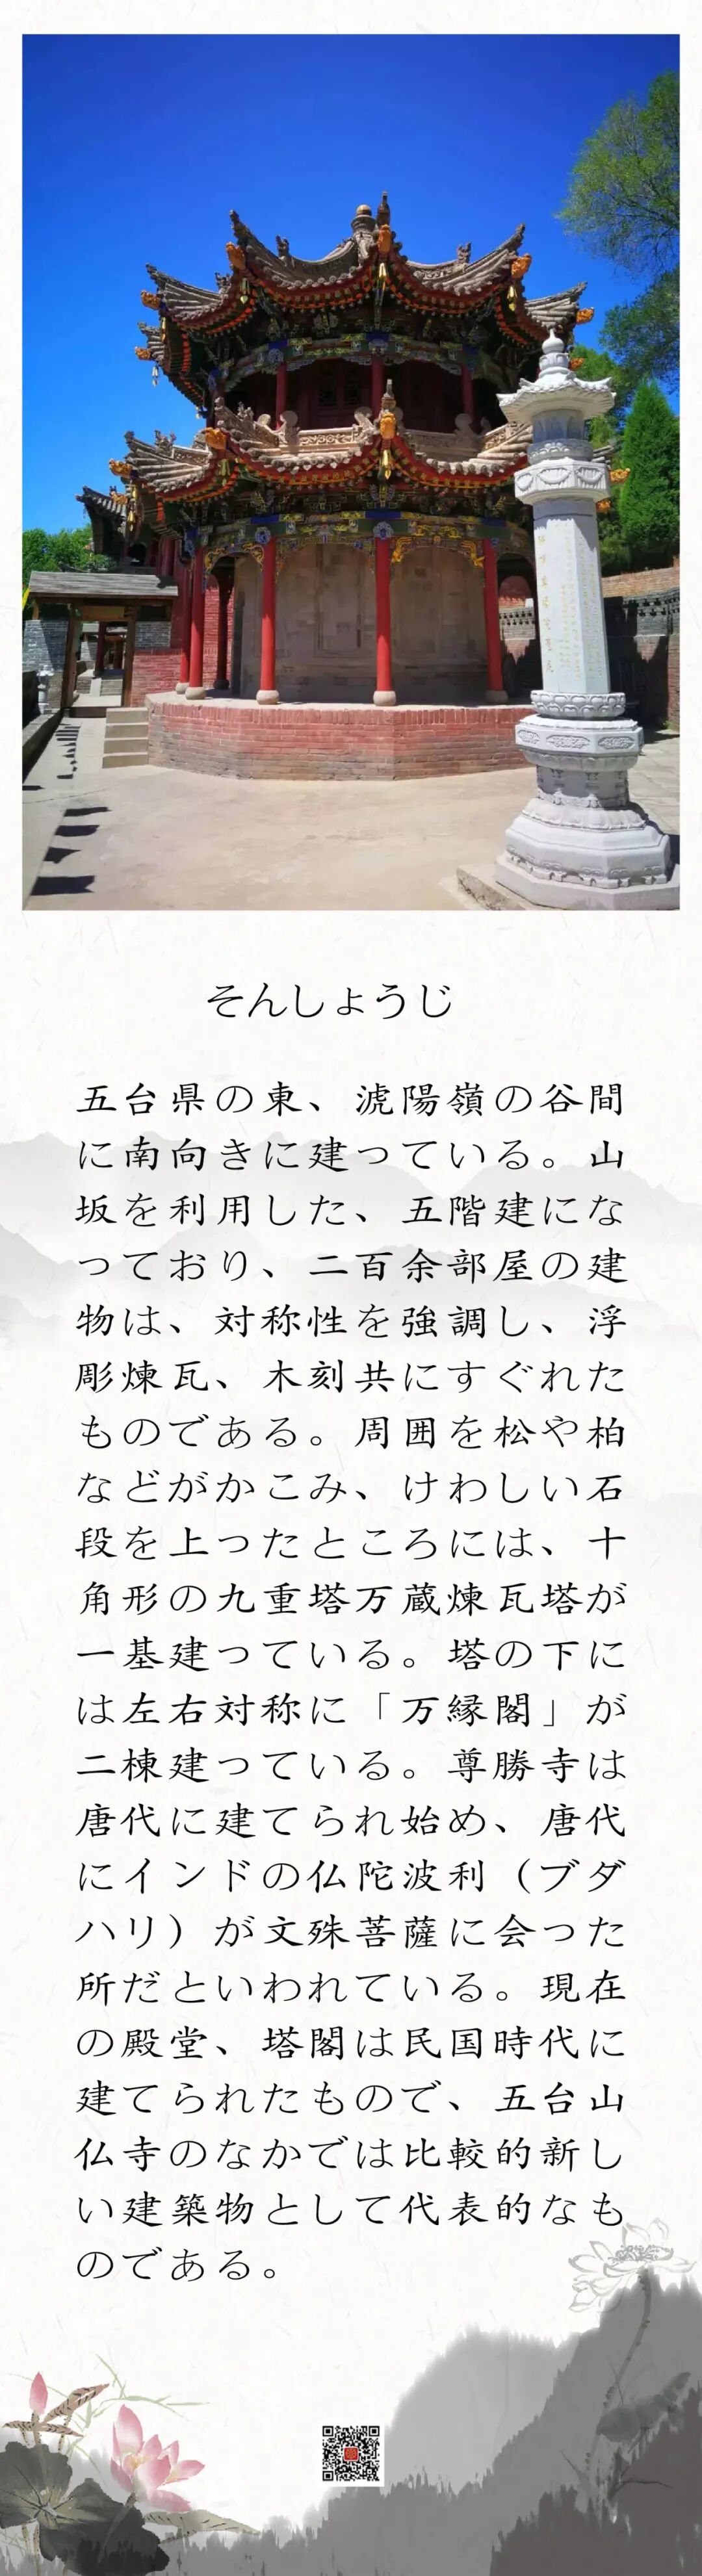 そんしょうじ
五台県の東、滹陽嶺の谷間
に南向きに建っている。山
坂を利用した、五階建にな
っており、二百余部屋の建
物は、対称性を強調し、浮
彫煉瓦、木刻共にすぐれた
ものである。周囲を松や柏
などがかこみ、けわしい石
段を上ったところには、十
角形の九重塔万蔵煉瓦塔が
一基建っている。塔の下に
は左右対称に「万縁閣」が
二棟建っている。尊勝寺は
唐代に建てられ始め、唐代
にインドの仏陀波利（ブダ
ハリ）が文殊菩薩に会った
所だといわれている。現在
の殿堂、塔閣は民国時代に
建てられたもので、五台山
仏寺のなかでは比較的新し
い建築物として代表的なも
のである。